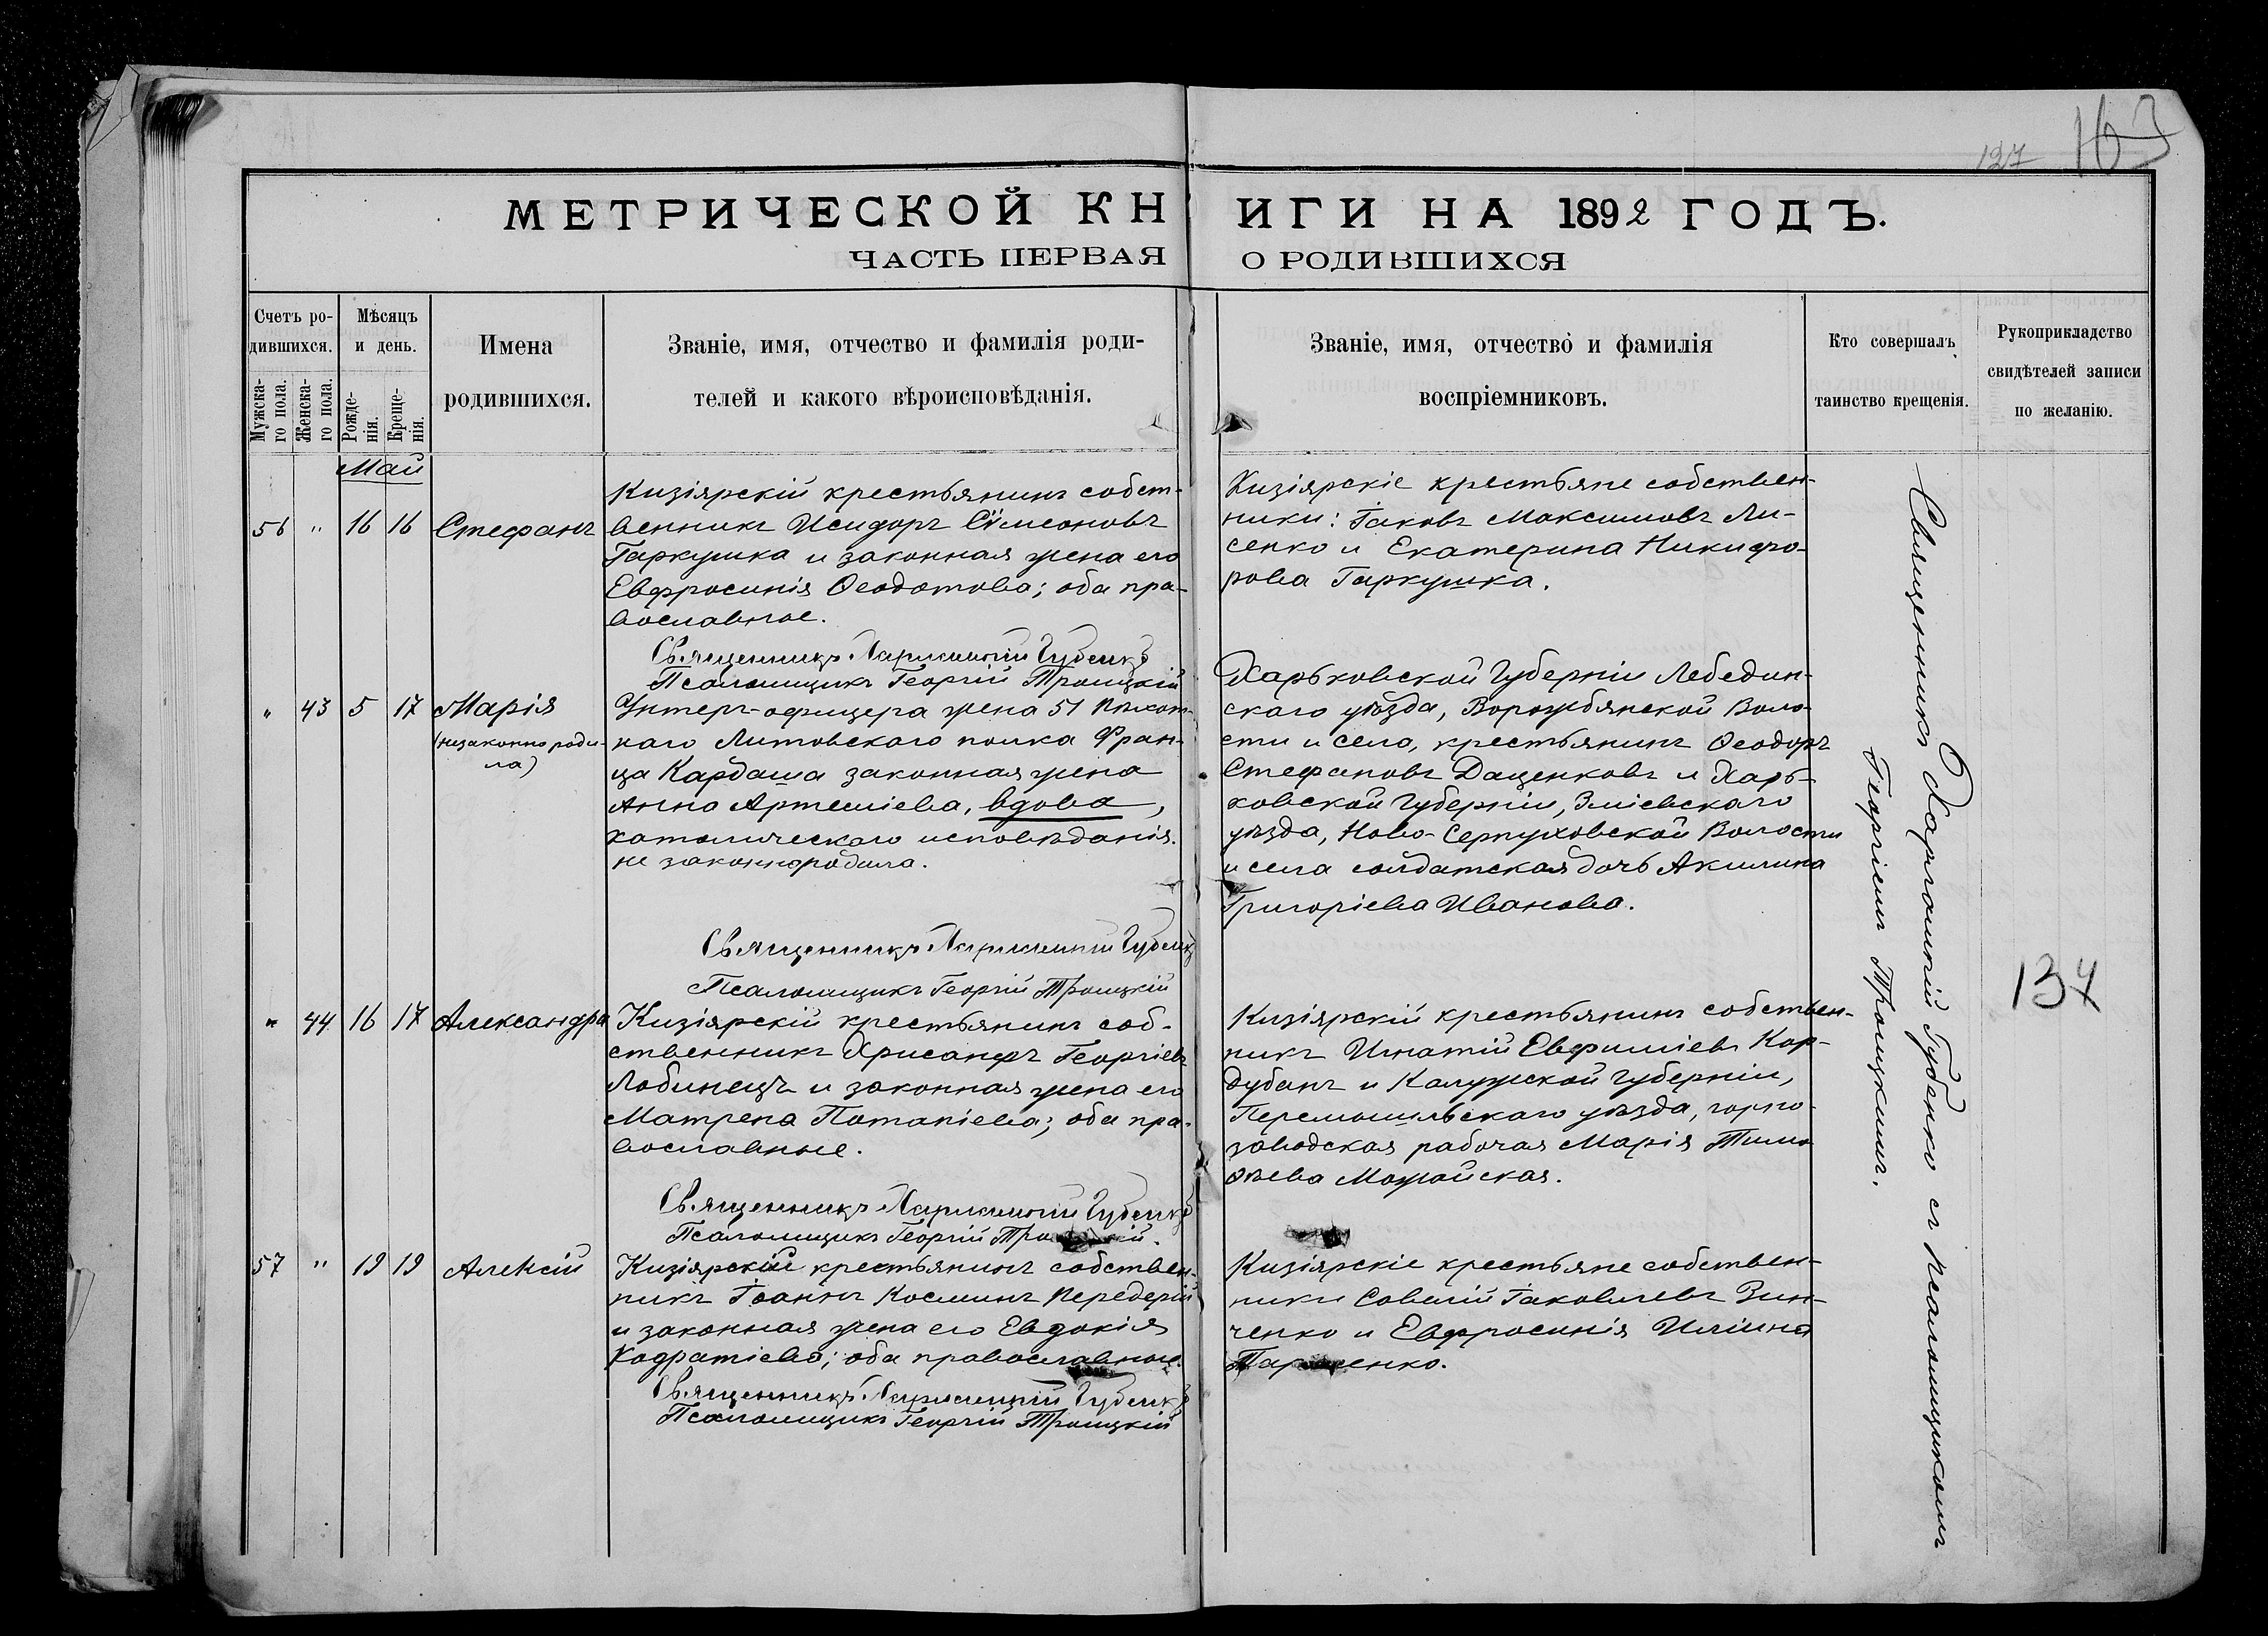 127 163
МЕТРИЧЕСКОЙ КНИГИ НА 1892 ГОДЪ.
ЧАСТЬ ПЕРВАЯ О РОДИВШИХСЯ
Счетъ ро-
дившихся.
Мужска-
го пола.
Женска-
го пола.
Мѣсяцъ
и день.
Рожде-
нія.
Креще-
нія.
Имена
родившихся.
Званіе, имя, отчество и фамилія роди-
телей и какого вѣроисповѣданія.
Званіе, имя, отчество и фамилія
воспріемниковъ.
Кто совершалъ
таинство крещенія.
Рукоприкладство
свидѣтелей записи
по желанію.
Май
56 " 16 16 Стефанъ
Кизіярскій крестьянинъ собст-
венникъ Исидоръ Сѵмеоновъ
Гаркушка и законная жена его
Евфросинія Ѳеодотова; оба пра-
вославные.
Священникъ Харлампій Губенко
Псаломщикъ Георгій Троицкій
Кизіярскіе крестьяне собствен-
ники: Іаковъ Максимовъ Ли-
сенко и Екатерина Никифо-
рова Гаркушка.
" 43 5 17 Марія
(незаконно роди-
ла)
Унтеръ-офицера жена 51 пѣхот-
наго Литовскаго полка Фран-
ца Кардаша законная жена
Анна Артеміева, вдова,
католическаго исповѣданія.
не законно родила.
Священникъ Харлампій Губенко
Псаломщикъ Георгій Троицкій
Харьковской Губерніи Лебедин-
скаго уѣзда, Ворожбянской Воло-
сти и села, крестьянинъ Ѳеодоръ
Стефановъ Даценковъ и Харь-
ковской Губерніи, Зміевскаго
уѣзда, Ново-Серпуховской Волости
и села солдатская дочь Акилина
Григоріева Иванова.
" 44 16 17 Александра
Кизіярскій крестьянинъ соб-
ственникъ Хрисанфъ Георгіевъ
Лобинецъ и законная жена его
Матрена Потапіева; оба пра-
вославные.
Священникъ Харлампій Губенко
Псаломщикъ Георгій Троицкій.
Кизіярскій крестьянинъ собствен-
никъ Игнатій Евфиміевъ Кор-
дубанъ и Калужской Губерніи,
Перемышльскаго уѣзда, горно-
заводская рабочая Марія Тимо-
ѳѣева Можайская.
57 " 19 19 Алексій
Кизіярскій крестьянинъ собствен-
никъ Іоаннъ Косминъ Передерій
и законная жена его Евдокія
Кодратіева; оба православные.
Священникъ Харлампій Губенко
Псаломщикъ Георгій Троицкій
Кизіярскіе крестьяне собствен-
ники Савелій Іаковлевъ Зин-
ченко и Евфросинія Иліина
Священникъ Харлампій Губенко съ псаломщикомъ
Георгіемъ Троицкимъ.
134